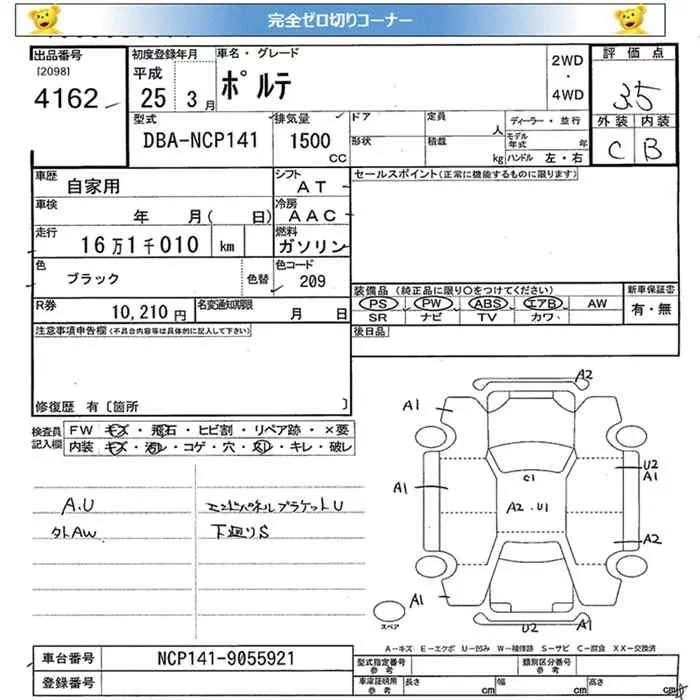 完全ゼロ切りコーナー
出品番号
[2098]
4162
初度登録年月
平成
25 3月
車名・グレード
ポルテ
2WD
・
4WD
評価点
3.5
外装 内装
C B
型式
DBA-NCP141
排気量
1500
CC
ドア
形状
定員
人
積載
kg
ディーラー・並行
モデル年式 年
ハンドル 左・右
車歴
自家用
シフト
AT
セールスポイント(正常に機能するものに限ります)
車検
年 月( 日)
冷房
AAC
走行
16万1千010 km
燃料
ガソリン
色
ブラック
色替
色コード
209
装備品(純正品に限り○をつけてください)
PS PW ABS エアB AW
SR ナビ TV カワ
新車保証書
有・無
R券
10,210円
名変通知期限
月 日
後日品
注意事項申告欄(不具合内容等は具体的に記入して下さい)
修復歴 有〔箇所 〕
検査員
記入欄
FW キズ・飛石・ヒビ割・リペア跡・×要
内装 キズ・汚レ・コゲ・穴・スレ・キレ・破レ
A.U
エンドパネルブラケットU
外AW
下廻りS
A2
A1
A1
C1
U2
A1
A2.U1
A2
A1
A1
U2
スペア
A-キズ E-エクボ U-凹み W-補修跡 S-サビ C-腐食 XX-交換済
車台番号
NCP141-9055921
登録番号
型式指定番号
参考
類別区分番号
参考
車庫証明用
参考
長さ cm
幅 cm
高さ cm